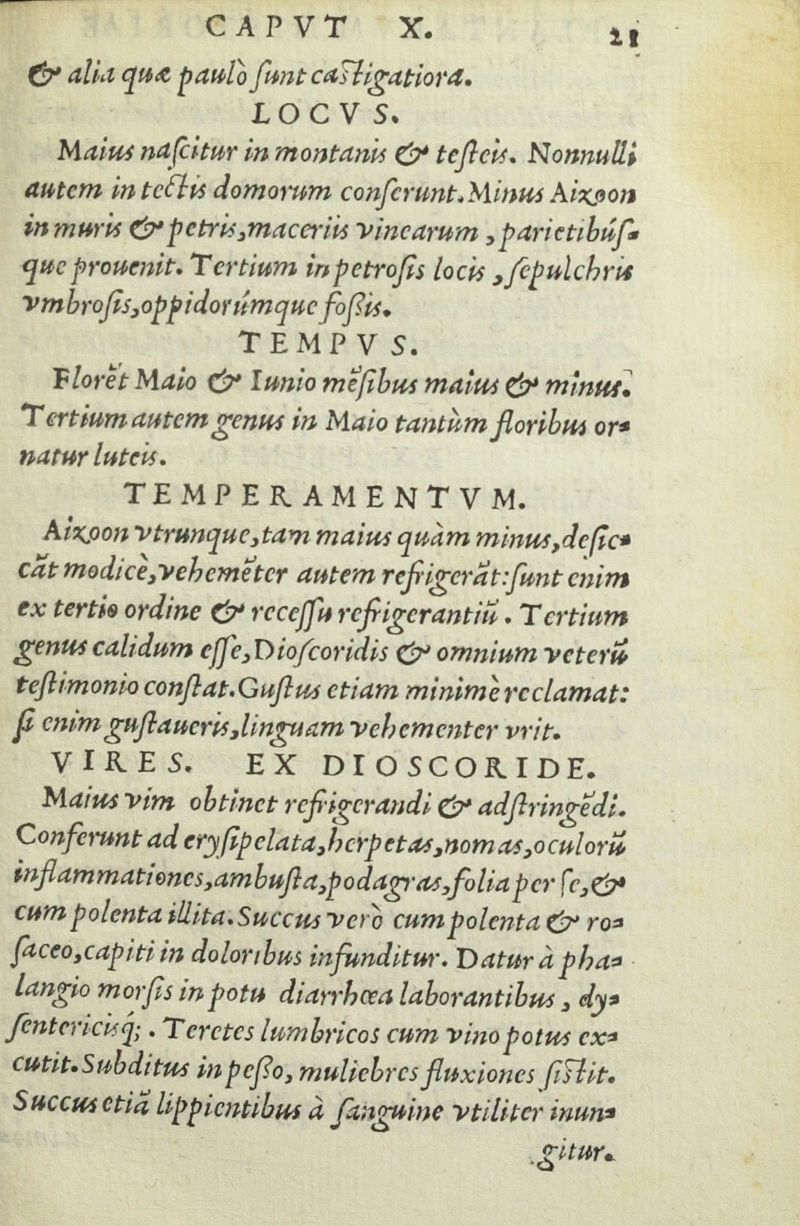 CAPVT X. 21
& alia quæ paulò sunt castigatiora.
LOCVS.
Maius nascitur in montanis & testeis. Nonnulli
autem in tectis domorum conserunt. Minus Aizoon
in muris & petris, maceriis vinearum, parietibús-
que prouenit. Tertium in petrosis locis, sepulchris
vmbrosis, oppidorúmque fossis.
TEMPVS.
Florẽt Maio & Iunio mẽsibus maius & minus.
Tertium autem genus in Maio tantùm floribus or-
natur luteis.
TEMPERAMENTVM.
Aizoon vtrunque, tam maius quàm minus, desic-
cãt modicè, vehemẽter autem refrigerãt: sunt enim
ex tertio ordine & recessu refrigerantiũ. Tertium
genus calidum esse, Dioscoridis & omnium veterũ
testimonio constat. Gustus etiam minimè reclamat:
si enim gustaueris, linguam vehementer vrit.
VIRES. EX DIOSCORIDE.
Maius vim obtinet refrigerandi & adstringẽdi.
Conferunt ad erysipelata, herpetas, nomas, oculorũ
inflammationes, ambusta, podagras, folia per se, &
cum polenta illita. Succus verò cum polenta & ro-
saceo, capiti in doloribus infunditur. Datur à pha-
langio morsis in potu diarrhœa laborantibus, dy-
sentericisq́;. Teretes lumbricos cum vino potus ex-
cutit. Subditus in pesso, muliebres fluxiones sistit.
Succus etiã lippientibus à sanguine vtiliter inun-
gitur.